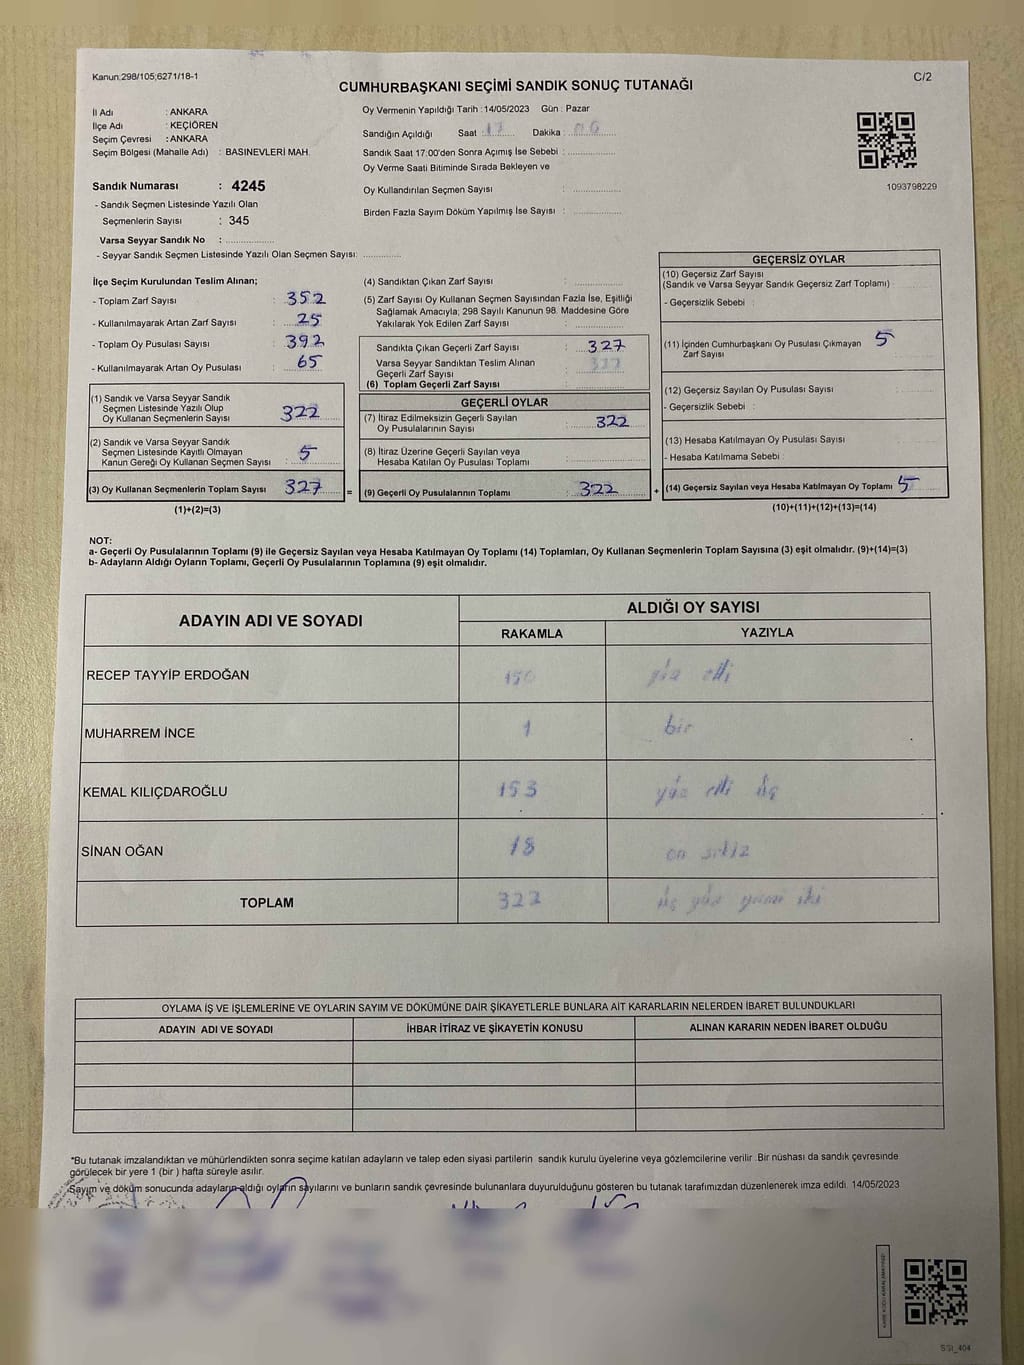 Kanun:298/105;6271/18-1
C/2
CUMHURBAŞKANI SEÇİMİ SANDIK SONUÇ TUTANAĞI
İl Adı : ANKARA
İlçe Adı : KEÇİÖREN
Seçim Çevresi : ANKARA
Seçim Bölgesi (Mahalle Adı) : BASINEVLERİ MAH.
Sandık Numarası : 4245
- Sandık Seçmen Listesinde Yazılı Olan
Seçmenlerin Sayısı : 345
Varsa Seyyar Sandık No : ..............
- Seyyar Sandık Seçmen Listesinde Yazılı Olan Seçmen Sayısı: ..............
Oy Vermenin Yapıldığı Tarih : 14/05/2023 Gün : Pazar
Sandığın Açıldığı Saat : 17 Dakika : 06
Sandık Saat 17:00'den Sonra Açımış İse Sebebi : ..............
Oy Verme Saati Bitiminde Sırada Bekleyen ve
Oy Kullandırılan Seçmen Sayısı : ..............
Birden Fazla Sayım Döküm Yapılmış İse Sayısı : ..............
1093798229
İlçe Seçim Kurulundan Teslim Alınan;
- Toplam Zarf Sayısı : 352
- Kullanılmayarak Artan Zarf Sayısı : 25
- Toplam Oy Pusulası Sayısı : 392
- Kullanılmayarak Artan Oy Pusulası : 65
(1) Sandık ve Varsa Seyyar Sandık
Seçmen Listesinde Yazılı Olup
Oy Kullanan Seçmenlerin Sayısı 322
(2) Sandık ve Varsa Seyyar Sandık
Seçmen Listesinde Kayıtlı Olmayan
Kanun Gereği Oy Kullanan Seçmen Sayısı : 5
(3) Oy Kullanan Seçmenlerin Toplam Sayısı 327 =
(1)+(2)=(3)
(4) Sandıktan Çıkan Zarf Sayısı : ..............
(5) Zarf Sayısı Oy Kullanan Seçmen Sayısından Fazla İse, Eşitliği
Sağlamak Amacıyla; 298 Sayılı Kanunun 98. Maddesine Göre
Yakılarak Yok Edilen Zarf Sayısı : ..............
Sandıkta Çıkan Geçerli Zarf Sayısı : 327
Varsa Seyyar Sandıktan Teslim Alınan
Geçerli Zarf Sayısı
(6) Toplam Geçerli Zarf Sayısı :
GEÇERLİ OYLAR
(7) İtiraz Edilmeksizin Geçerli Sayılan
Oy Pusulalarının Sayısı : 322
(8) İtiraz Üzerine Geçerli Sayılan veya
Hesaba Katılan Oy Pusulası Toplamı : ..............
(9) Geçerli Oy Pusulalarının Toplamı : 322 +
GEÇERSİZ OYLAR
(10) Geçersiz Zarf Sayısı
(Sandık ve Varsa Seyyar Sandık Geçersiz Zarf Toplamı)
- Geçersizlik Sebebi :
(11) İçinden Cumhurbaşkanı Oy Pusulası Çıkmayan
Zarf Sayısı 5
(12) Geçersiz Sayılan Oy Pusulası Sayısı
- Geçersizlik Sebebi :
(13) Hesaba Katılmayan Oy Pusulası Sayısı
- Hesaba Katılmama Sebebi :
(14) Geçersiz Sayılan veya Hesaba Katılmayan Oy Toplamı 5
(10)+(11)+(12)+(13)=(14)
NOT:
a- Geçerli Oy Pusulalarının Toplamı (9) ile Geçersiz Sayılan veya Hesaba Katılmayan Oy Toplamı (14) Toplamları, Oy Kullanan Seçmenlerin Toplam Sayısına (3) eşit olmalıdır. (9)+(14)=(3)
b- Adayların Aldığı Oyların Toplamı, Geçerli Oy Pusulalarının Toplamına (9) eşit olmalıdır.
ADAYIN ADI VE SOYADI
ALDIĞI OY SAYISI
RAKAMLA YAZIYLA
RECEP TAYYİP ERDOĞAN 150 yüz elli
MUHARREM İNCE 1 bir
KEMAL KILIÇDAROĞLU 153 yüz elli üç
SİNAN OĞAN 18 on sekiz
TOPLAM 322 üç yüz yirmi iki
OYLAMA İŞ VE İŞLEMLERİNE VE OYLARIN SAYIM VE DÖKÜMÜNE DAİR ŞİKAYETLERLE BUNLARA AİT KARARLARIN NELERDEN İBARET BULUNDUKLARI
ADAYIN ADI VE SOYADI İHBAR İTİRAZ VE ŞİKAYETİN KONUSU ALINAN KARARIN NEDEN İBARET OLDUĞU
*Bu tutanak imzalandıktan ve mühürlendikten sonra seçime katılan adayların ve talep eden siyasi partilerin sandık kurulu üyelerine veya gözlemcilerine verilir. Bir nüshası da sandık çevresinde
görülecek bir yere 1 (bir ) hafta süreyle asılır.
Sayım ve döküm sonucunda adayların aldığı oyların sayılarını ve bunların sandık çevresinde bulunanlara duyurulduğunu gösteren bu tutanak tarafımızdan düzenlenerek imza edildi. 14/05/2023
SSI_404